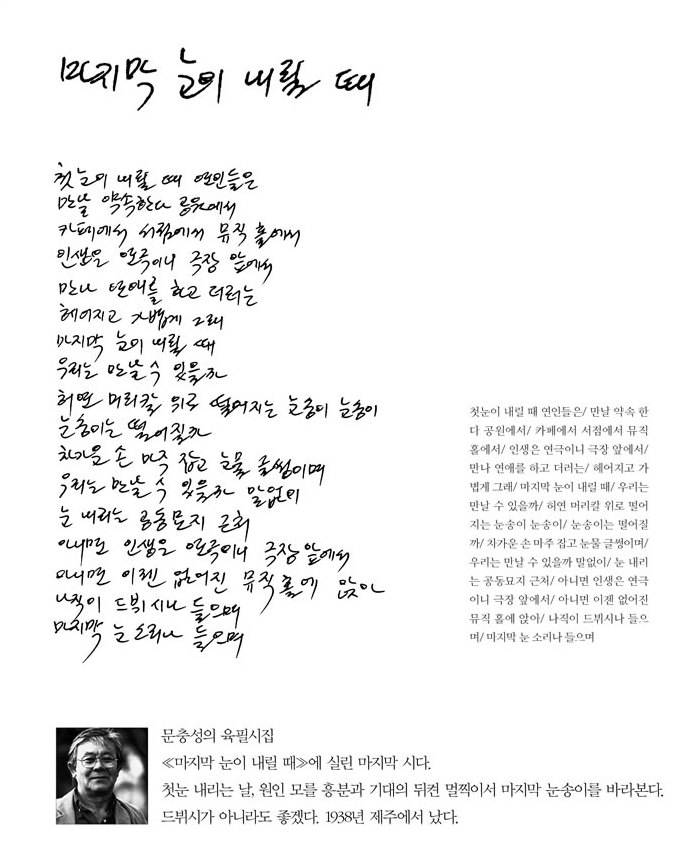 마지막 눈이 내릴 때
첫눈이 내릴 때 연인들은
만날 약속한다 공원에서
카페에서 서점에서 뮤직 홀에서
인생은 연극이니 극장 앞에서
만나 연애를 하고 더러는
헤어지고 가볍게 그래
마지막 눈이 내릴 때
우리는 만날 수 있을까
허연 머리칼 위로 떨어지는 눈송이 눈송이
눈송이는 떨어질까
차가운 손 마주 잡고 눈물 글썽이며
우리는 만날 수 있을까 말없이
눈 내리는 공동묘지 근처
아니면 인생은 연극이니 극장 앞에서
아니면 이젠 없어진 뮤직 홀에 앉아
나직이 드뷔시나 들으며
마지막 눈 소리나 들으며
첫눈이 내릴 때 연인들은/ 만날 약속 한
다 공원에서/ 카페에서 서점에서 뮤직
홀에서/ 인생은 연극이니 극장 앞에서/
만나 연애를 하고 더러는/ 헤어지고 가
볍게 그래/ 마지막 눈이 내릴 때/ 우리는
만날 수 있을까/ 허연 머리칼 위로 떨어
지는 눈송이 눈송이/ 눈송이는 떨어질
까/ 차가운 손 마주 잡고 눈물 글썽이며/
우리는 만날 수 있을까 말없이/ 눈 내리
는 공동묘지 근처/ 아니면 인생은 연극
이니 극장 앞에서/ 아니면 이젠 없어진
뮤직 홀에 앉아/ 나직이 드뷔시나 들으
며/ 마지막 눈 소리나 들으며
문충성의 육필시집
≪마지막 눈이 내릴 때≫에 실린 마지막 시다.
첫눈 내리는 날, 원인 모를 흥분과 기대의 뒤켠 멀찍이서 마지막 눈송이를 바라본다.
드뷔시가 아니라도 좋겠다. 1938년 제주에서 났다.